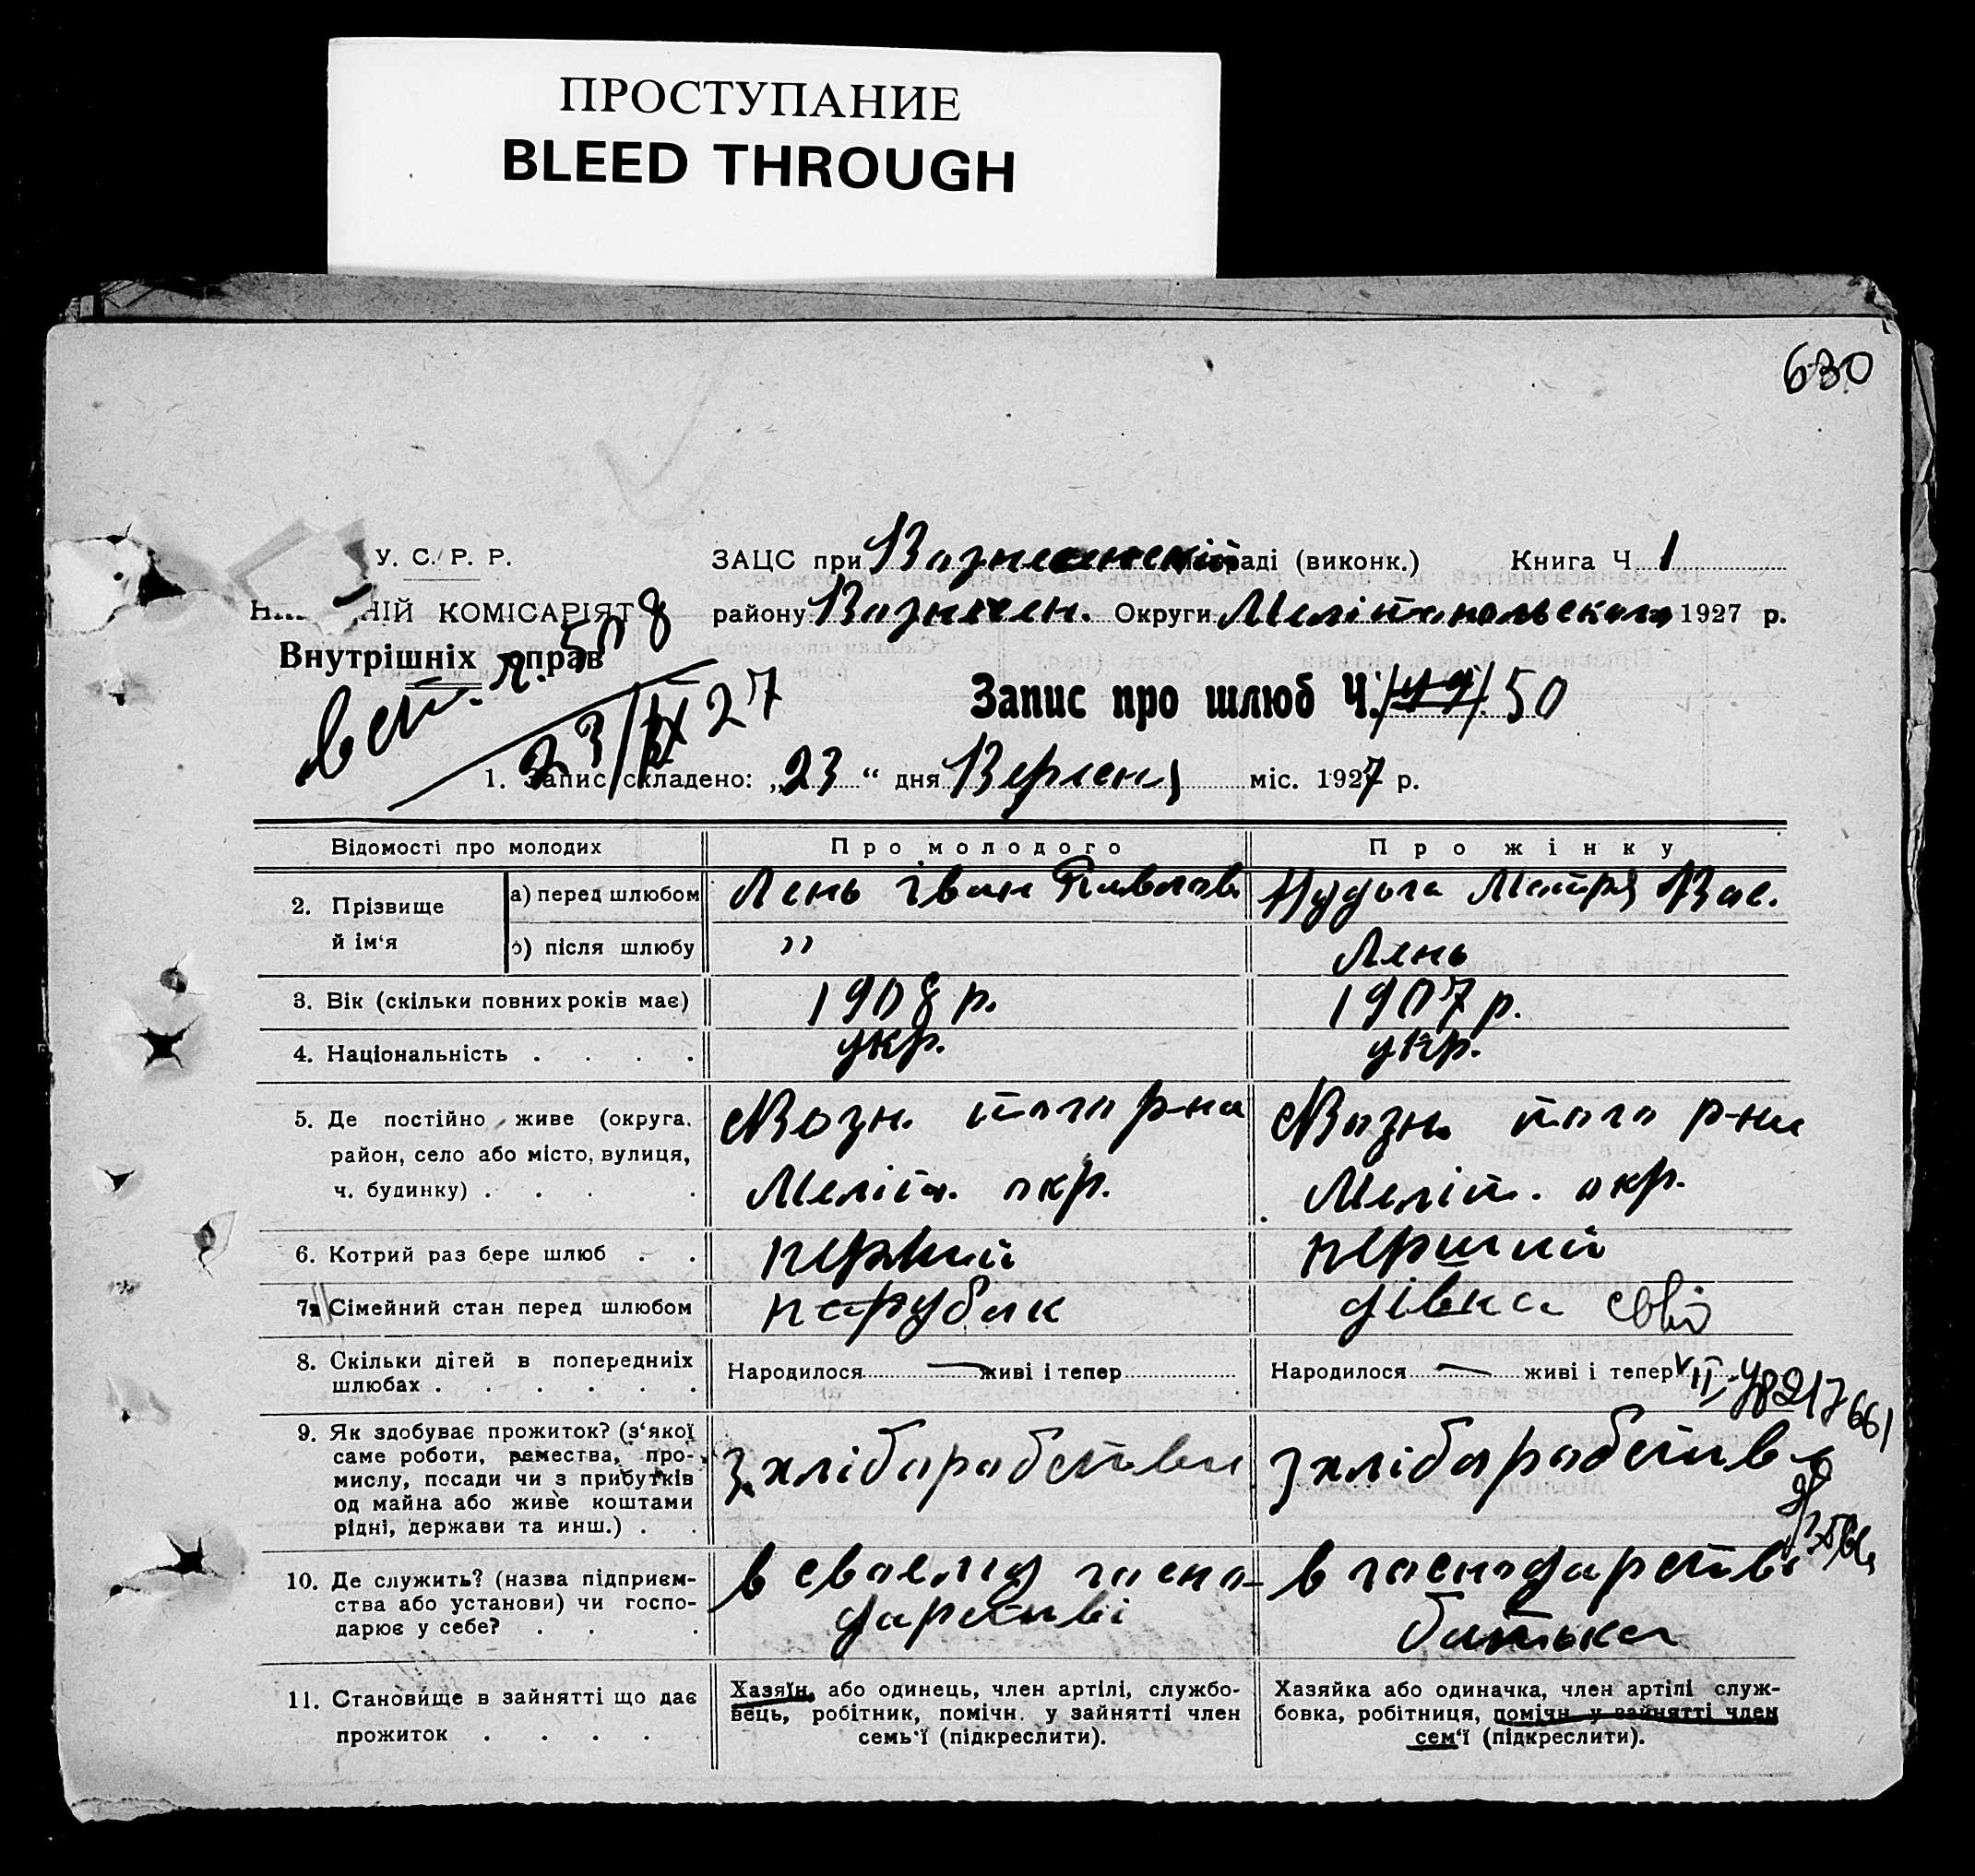 ПРОСТУПАНИЕ
BLEED THROUGH
630
У. С. Р. Р.
НІЙ КОМІСАРІЯТ
Внутрішніх справ
23/IX 27
ЗАЦС при Вознесенській раді (виконк.) Книга Ч. 1
району Вознесен. Округи Мелітопольськоі 1927 р.
Запис про шлюб Ч. 49 50
1. Запис складено: „23“ дня Вересня міс. 1927 р.
Відомості про молодих Про молодого Про жінку
2. Прізвище й ім‘я
а) перед шлюбом Лень Іван Павлов. Нудьга Мотря Вас.
б) після шлюбу " Лень
3. Вік (скільки повних років має) 1908 р. 1907 р.
4. Національність . . . . укр. укр.
5. Де постійно живе (округа, район, село або місто, вулиця, ч. будинку) . . . .
Возн. того р-на
Меліт. окр.
Возн. того р-на
Меліт. окр.
6. Котрий раз бере шлюб . . перший перший
7. Сімейний стан перед шлюбом парубок дівка
8. Скільки дітей в попередниіх шлюбах . . . . . .
Народилося — живі і тепер
Народилося — живі і тепер
9. Як здобуває прожиток? (з‘якої
саме роботи, ремества, про-
мислу, посади чи з прибутків
од майна або живе коштами
рідні, держави та инш.) . .
з хліборобства
з хліборобства
10. Де служить? (назва підприєм-
ства або установи) чи госпо-
дарює у себе? . . .
в своєму госпо-
дарстві
в господарстві
батька
11. Становище в зайнятті що дає
прожиток . . . . .
Хазяїн, або одинець, член артілі, службо-
вець, робітник, помічн. у зайнятті член
семь‘ї (підкреслити).
Хазяйка або одиначка, член артілі служ-
бовка, робітниця, помічн. у зайнятті член
сем‘ї (підкреслити).